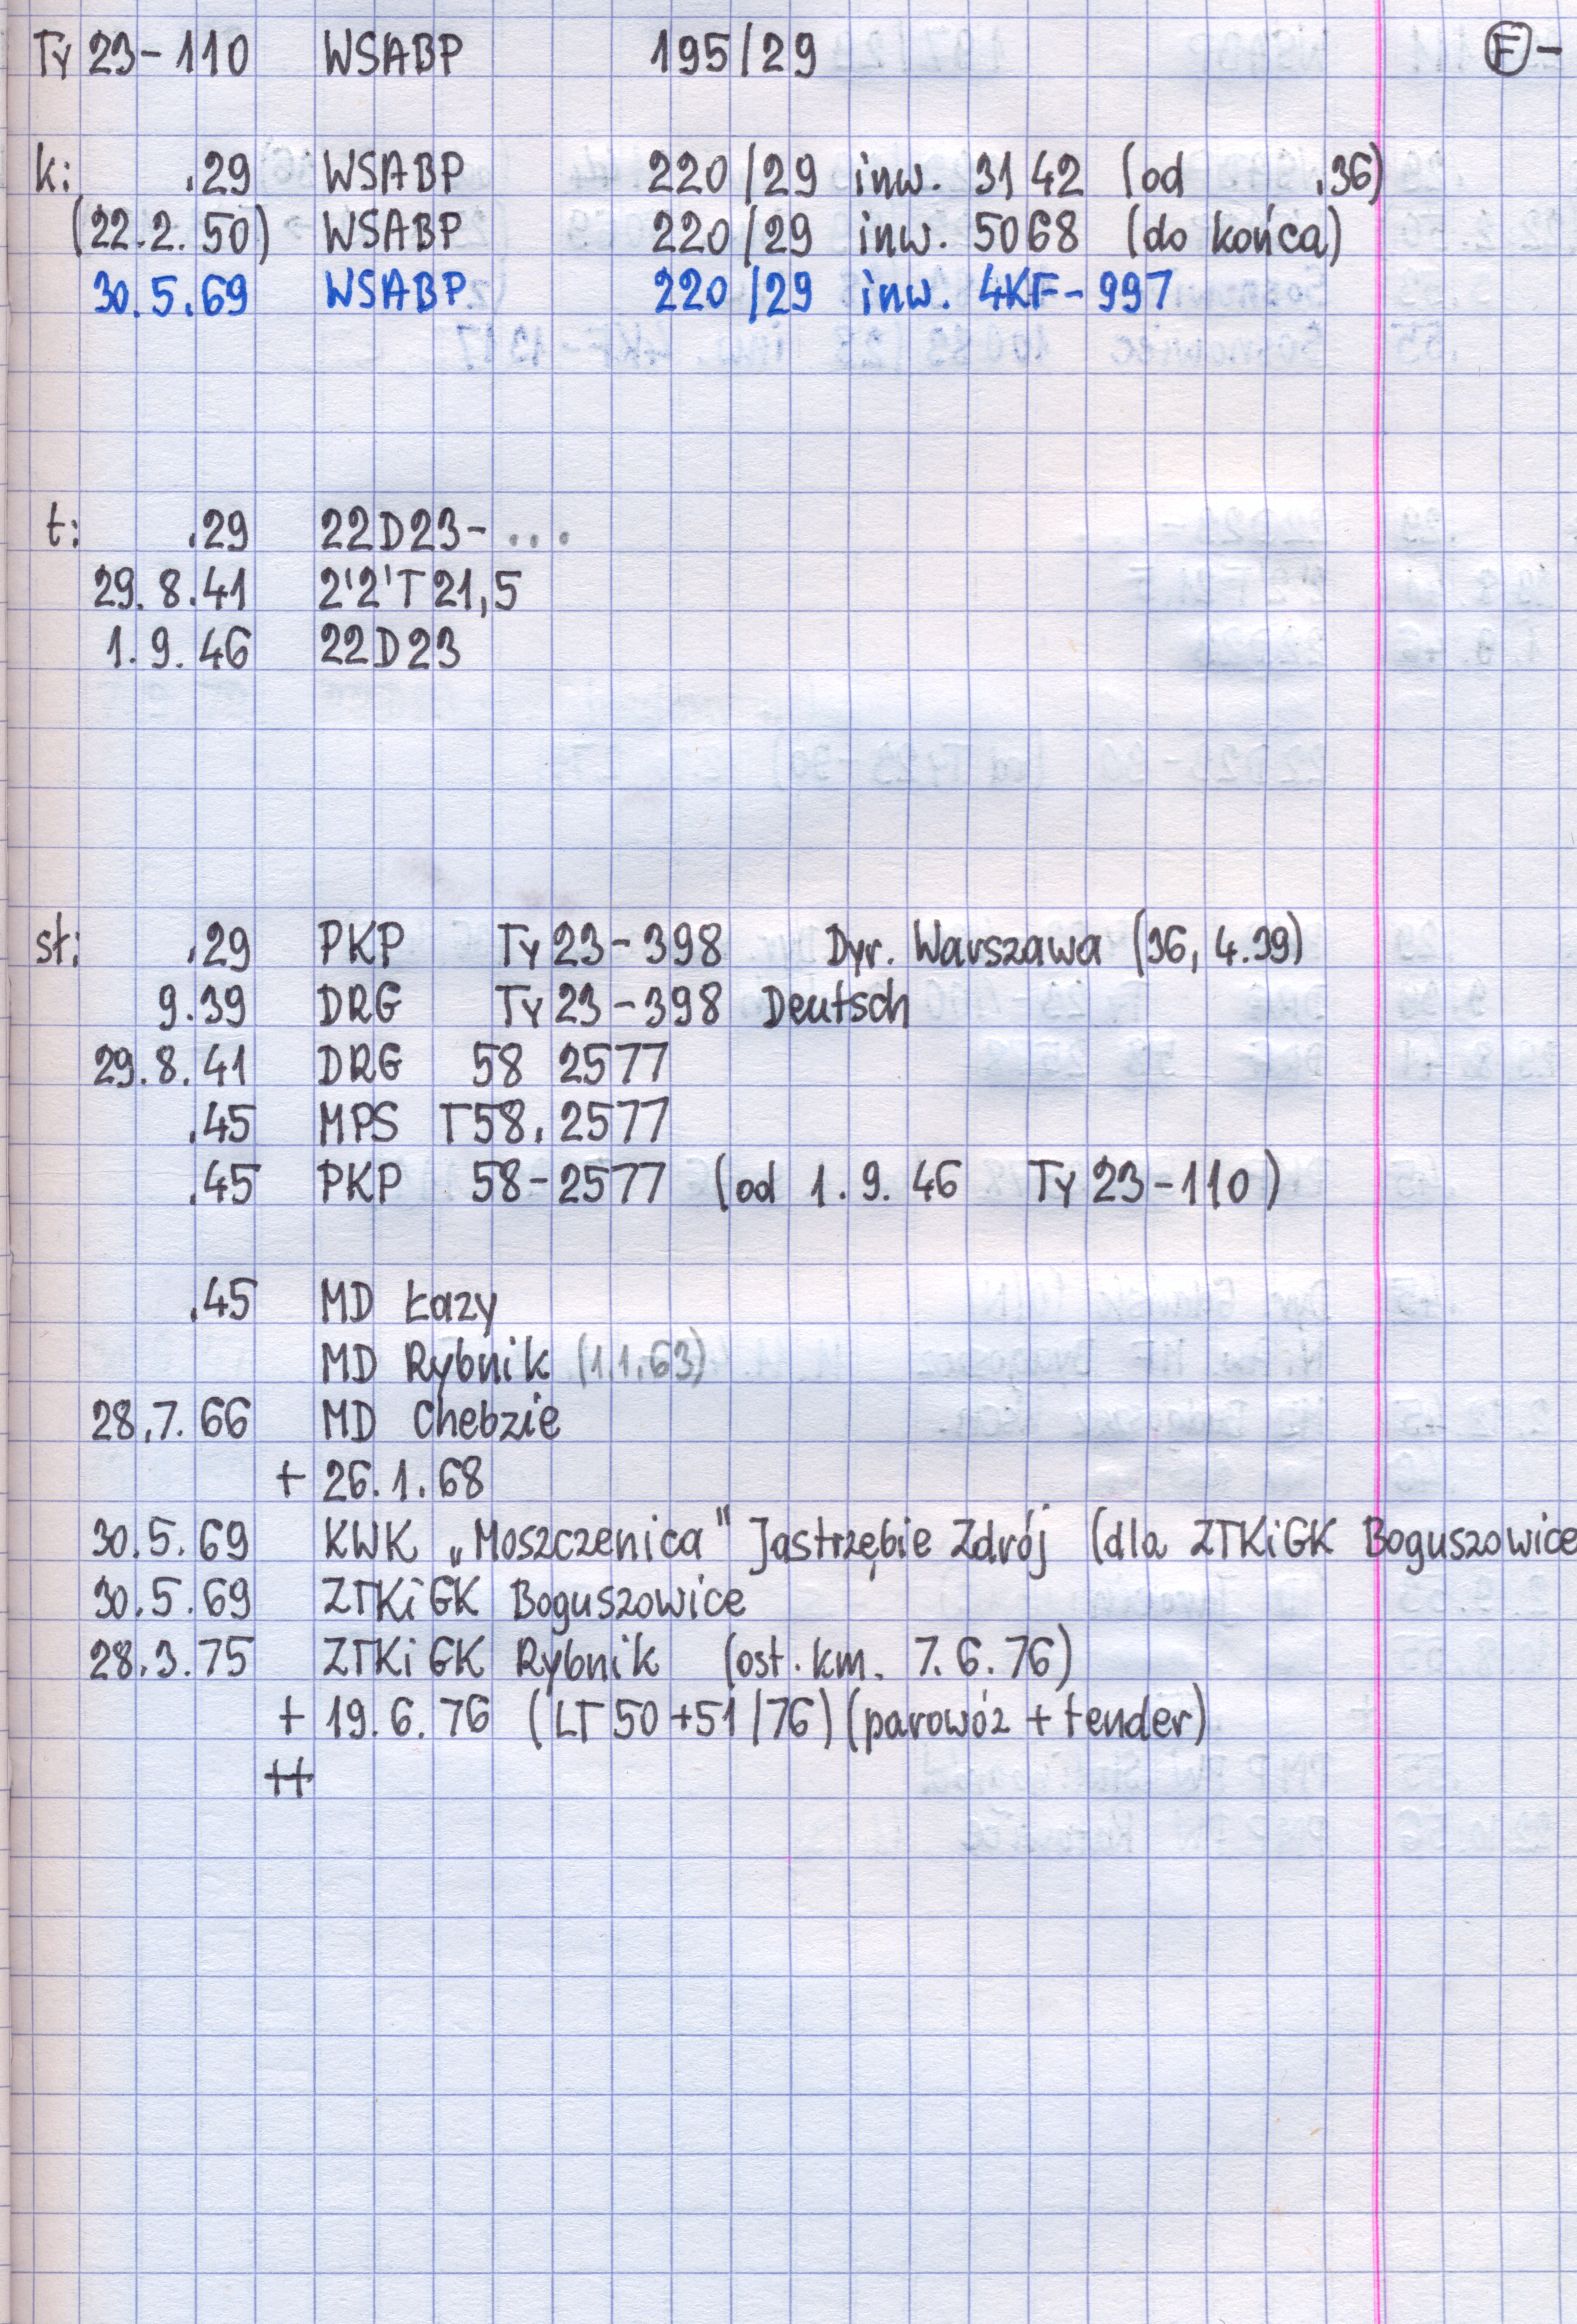 Ty 23-110 WSABP 195/29 F -
k: .29 WSABP 220/29 inw. 3142 (od .36)
(22.2.50) WSABP 220/29 inw. 5068 (do końca)
30.5.69 WSABP 220/29 inw. 4KF-997
t: .29 22D23-...
29.8.41 2'2'T21,5
1.9.46 22D23
sł: .29 PKP Ty 23-398 Dyr. Warszawa (36, 4.39)
9.39 DRG Ty 23-398 Deutsch
29.8.41 DRG 58 2577
.45 MPS T58.2577
.45 PKP 58-2577 (od 1.9.46 Ty 23-110)
.45 MD Łazy
MD Rybnik (1.1.63)
28.7.66 MD Chebzie
+ 26.1.68
30.5.69 KWK „Moszczenica" Jastrzębie Zdrój (dla ZTKiGK Boguszowice
30.5.69 ZTKiGK Boguszowice
28.3.75 ZTKiGK Rybnik (ost. km. 7.6.76)
+ 19.6.76 (LT 50+51/76) (parowóz + tender)
++